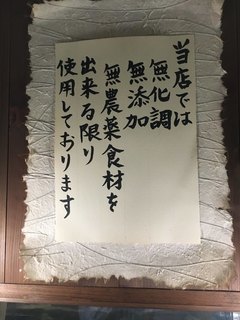 当店では
無化調
無添加
無農薬食材を
出来る限り
使用しております